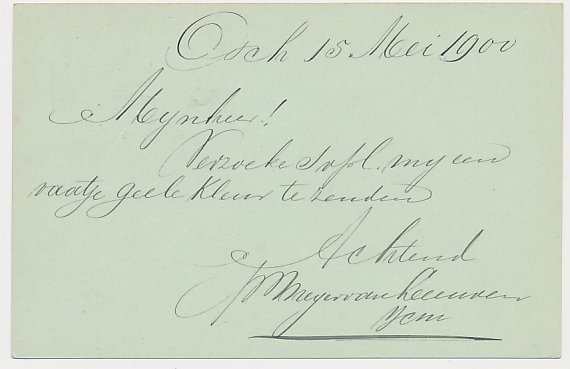 Osch 15 Mei 1900
Mynheer!
Verzoeke s.v.pl. my een
vaatje geele kleur te zenden
Achtend
Meyer van Leeuwen